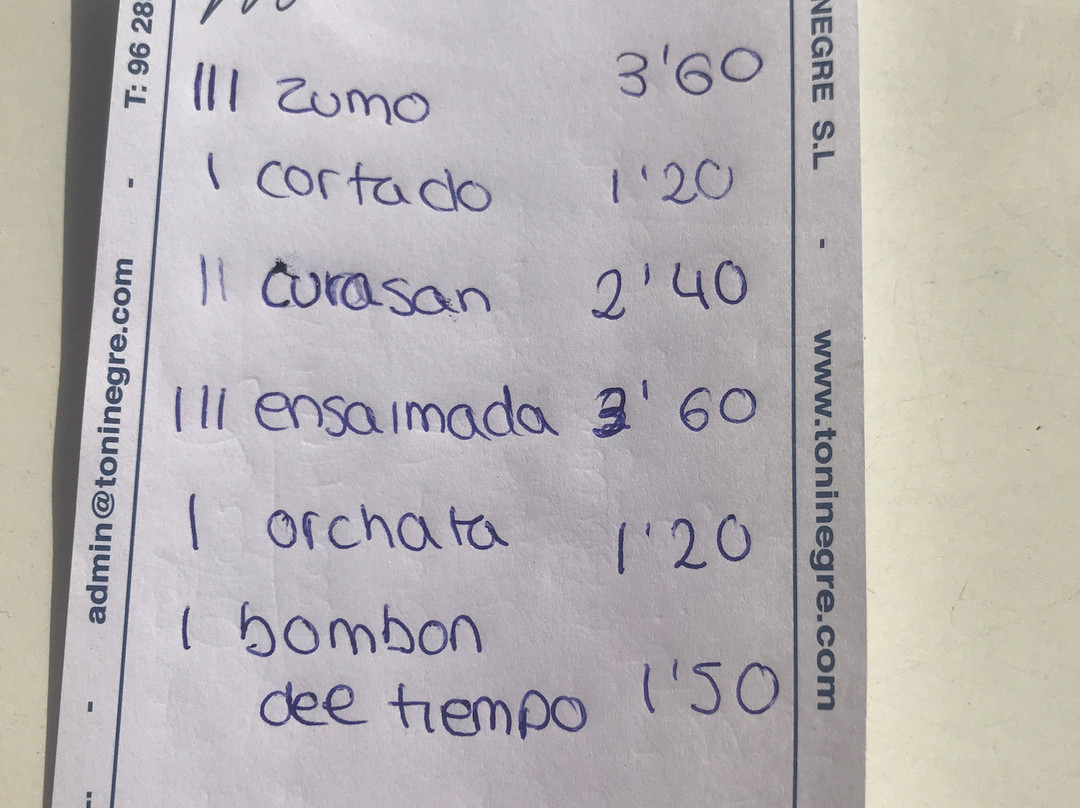 III zumo 3'60
I cortado 1'20
II curasan 2'40
III ensaimada 3'60
I orchata 1'20
I bombon
dee tiempo 1'50
T: 96 28
-
admin@toninegre.com
-
NEGRE S.L - www.toninegre.com